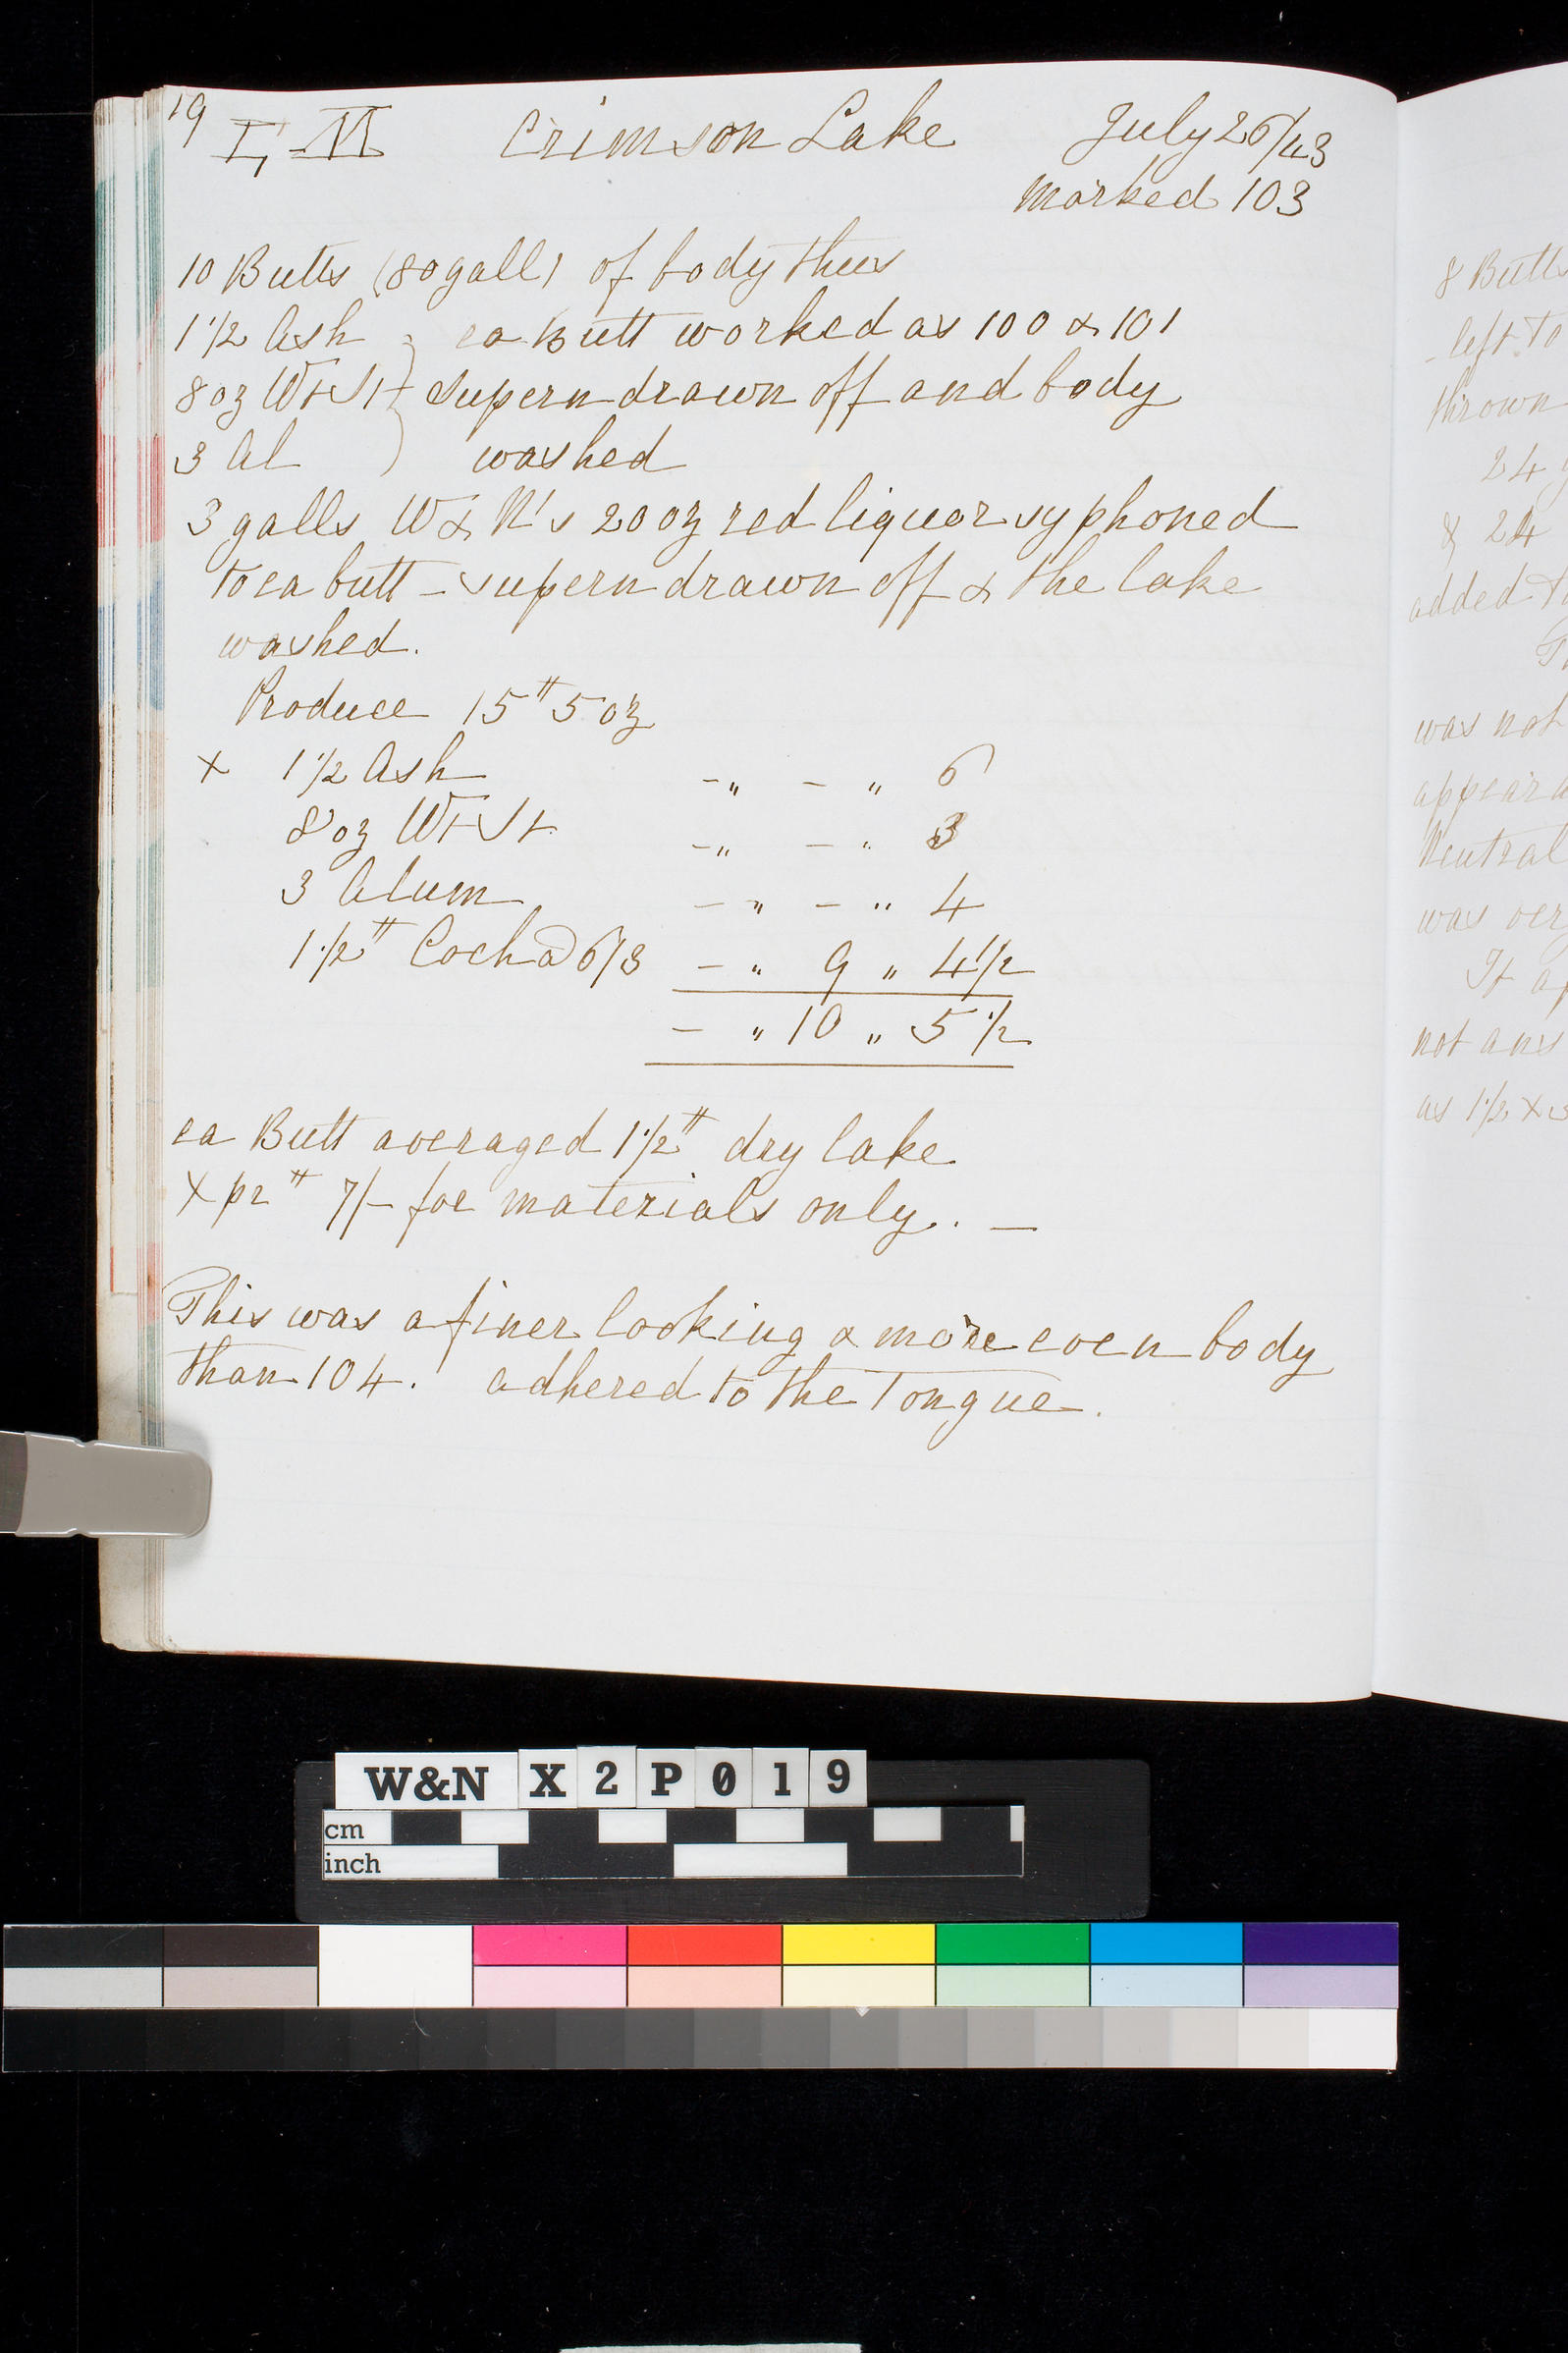 19 I, M Crimson Lake July 26/43
Marked 103
10 Butts (80 gall) of body thus
1 1/2 Ash } ea Butt worked as 100 & 101
8 oz Wt St } supern drawn off and body
3 Al } washed
3 galls W & N's 20 oz red liquor syphoned
to ea butt - supern drawn off & the lake
washed.
Produce 15 # 5 oz
x 1 1/2 Ash - " - " 6
8 oz Wt St - " - " 3
3 Alum - " - " 4
1 1/2 # Coch @ 6/3 - " 9 " 4 1/2
- " 10 " 5 1/2
ea Butt averaged 1 1/2 # dry lake
x pr # 7/- for materials only. —
This was a finer looking & more even body
than 104. adhered to the Tongue.
8 Butts
left to
thrown
24 g
& 24
added to
was not
appeara
Neutral
was very
It ap
not ans
as 1 1/2 x 3
W&N X 2 P 0 1 9
cm
inch